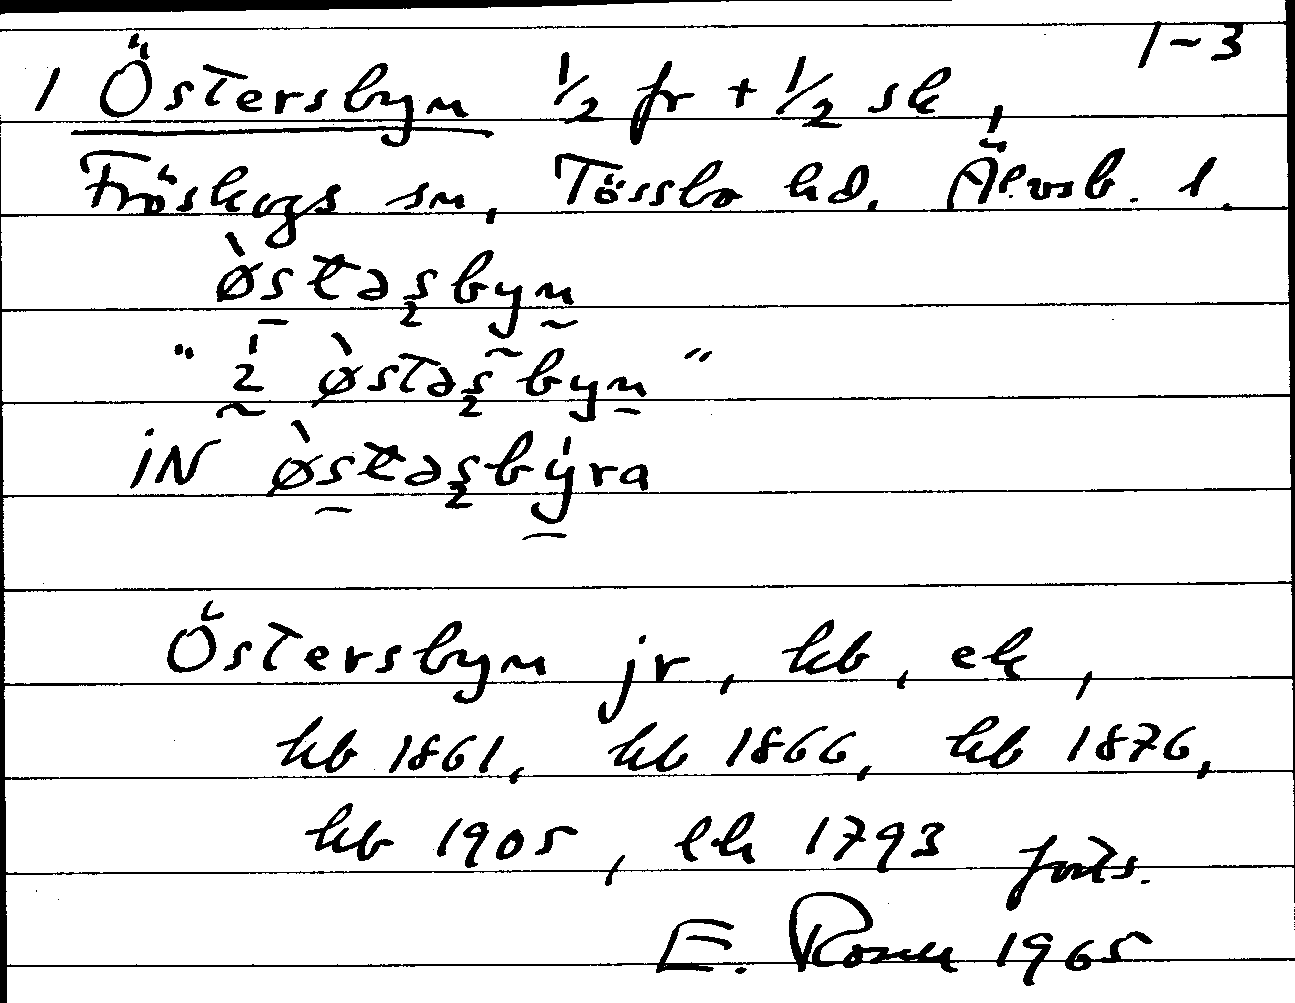 1-3
1 Östersbyn ½ fr + ½ sk,
Fröskogs sn, Tössbo hd. Älvsb. l.
østəsbyn
"i østəsbyn"
iN østəsbyra
Östersbyn jr, kb, ek,
kb 1861, kb 1866, kb 1876,
kb 1905, lk 1793 forts.
E. 1965